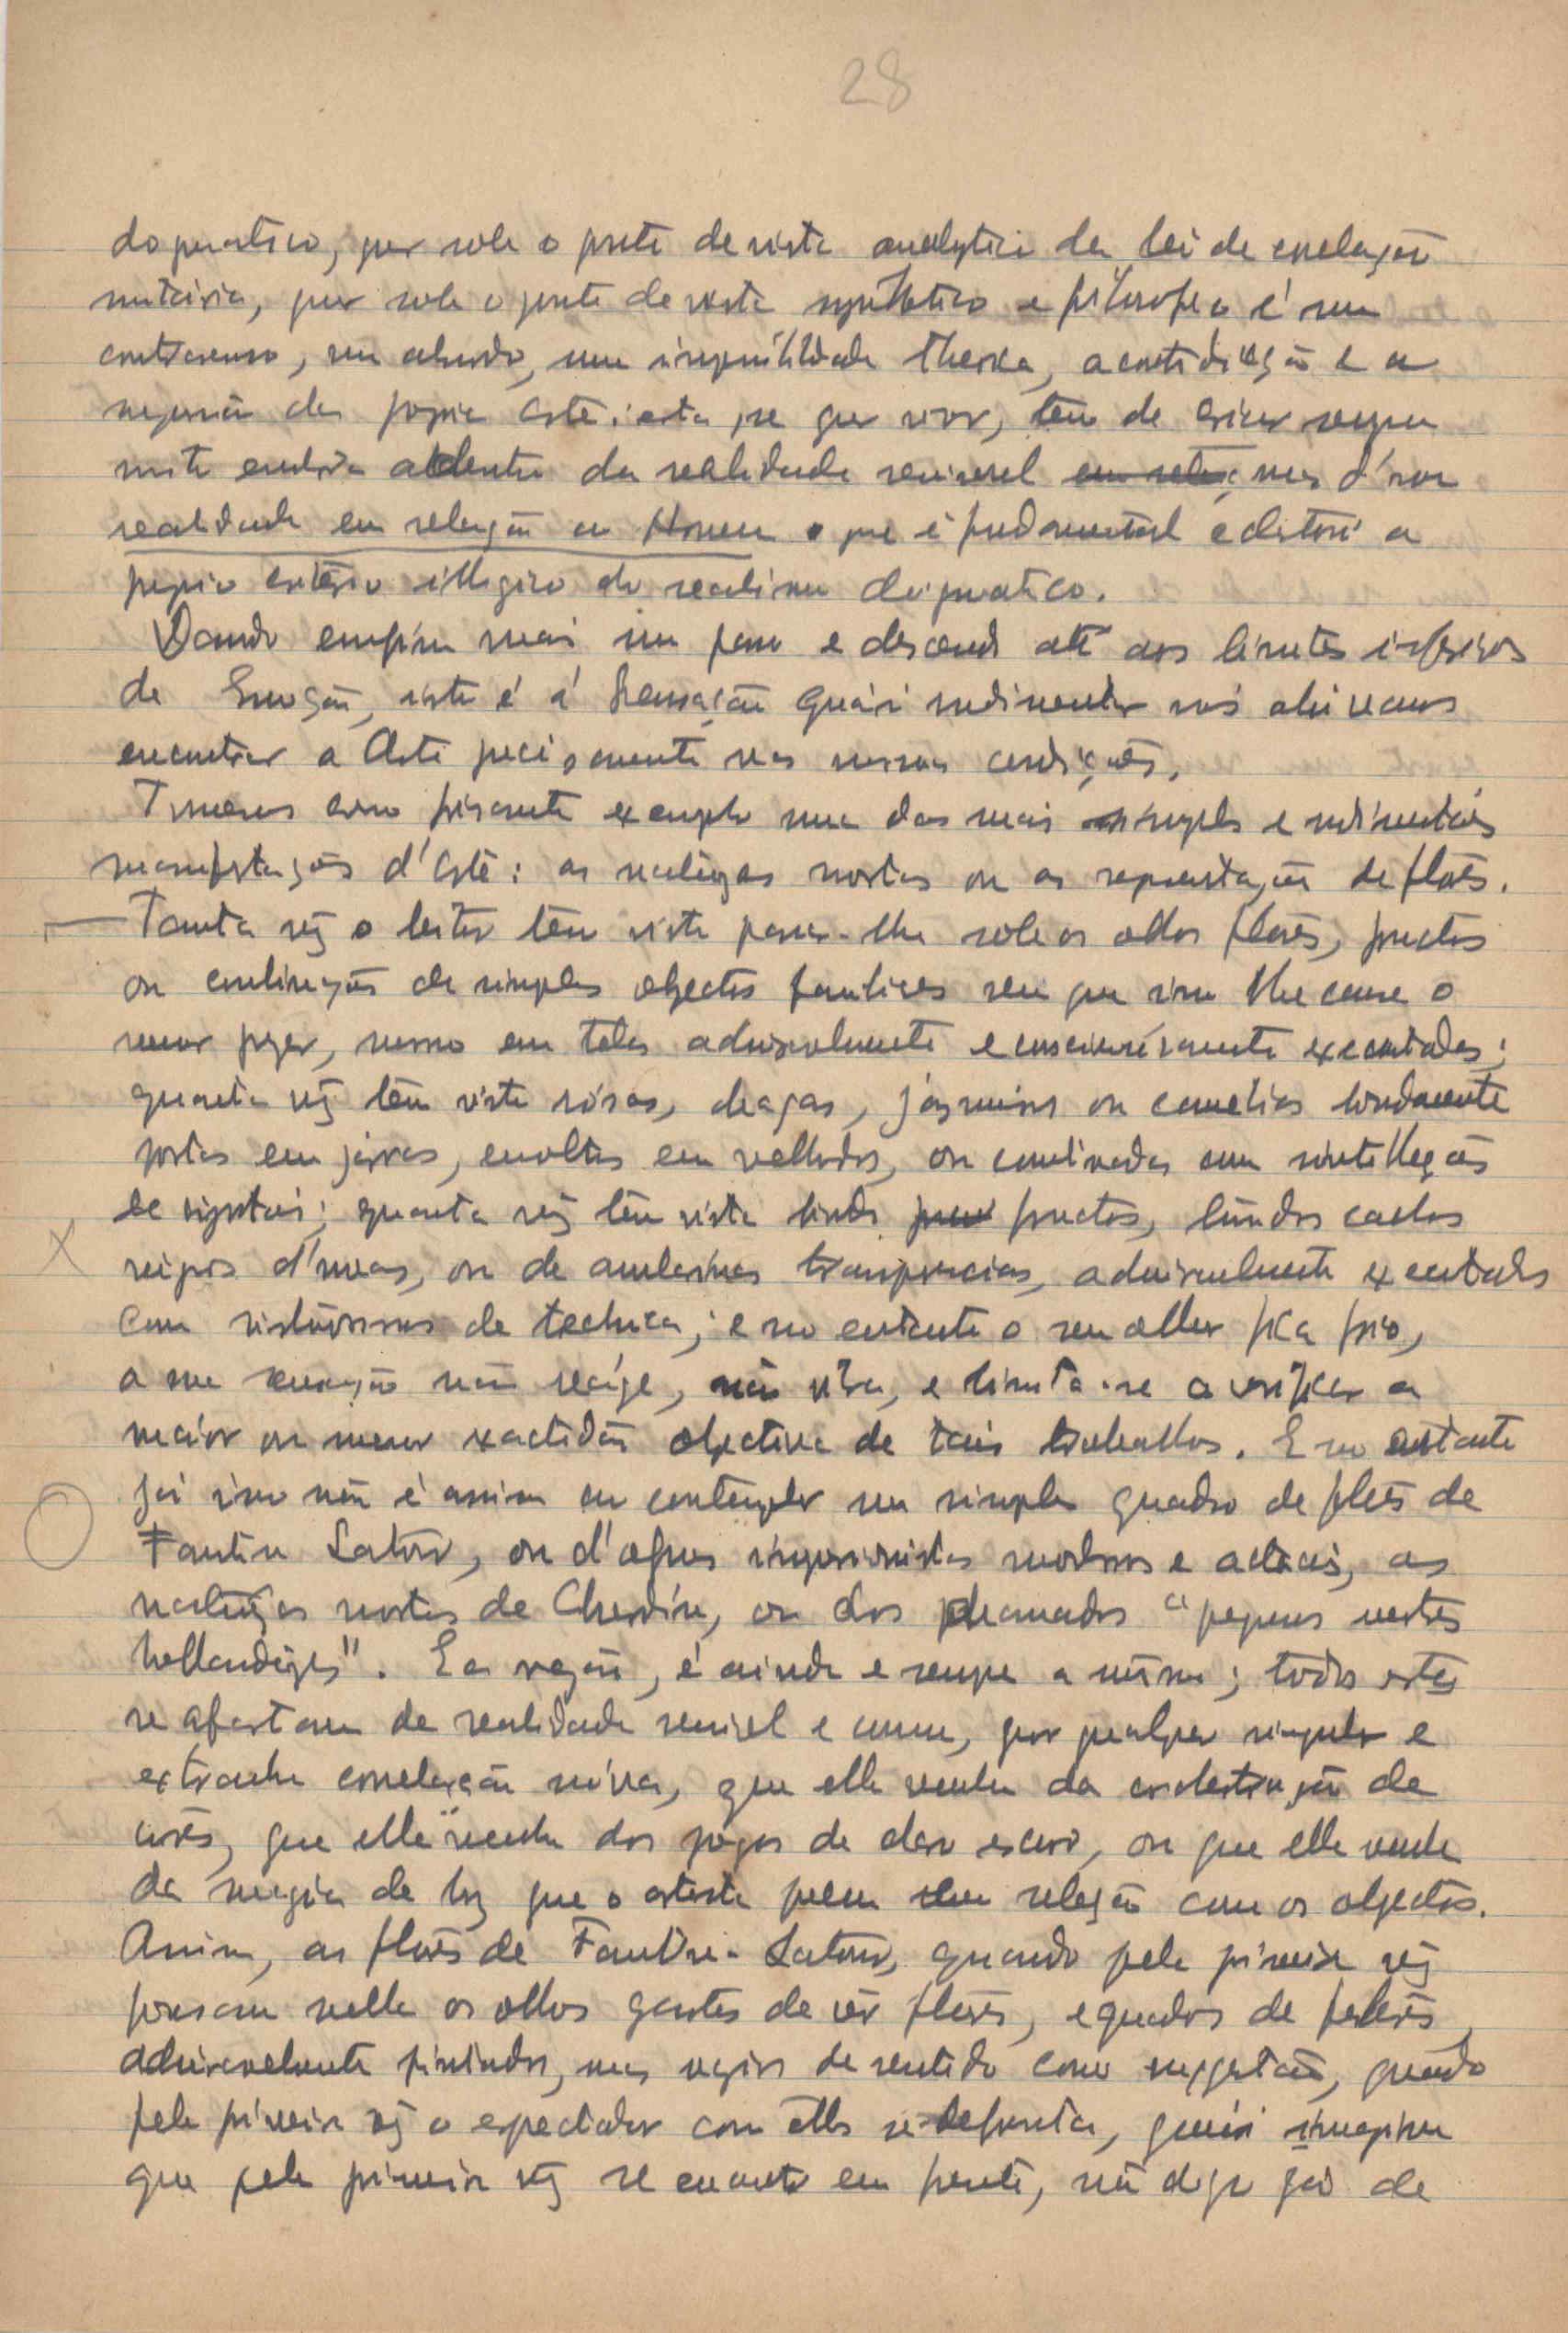 28
dogmatico, quer sob o ponto de vista analytico da lei de correlação
quer sob o ponto de vista synthetico e philosophico é um
contrasenso, um absurdo, uma impossibilidade theorica, a contradicção e a
negação da propria Arte: esta, se quer viver, tem de
embora dentro da realidade sensivel mas d'uma
realidade em relação ao Homem o que é fundamental e destroi o
proprio criterio illogico do realismo dogmatico.
Dando emfim mais um passo e descendo até aos limites inferiores
da Emoção, isto é á Sensação quási rudimentar nós ahi vamos
encontrar a Arte precisamente nas mesmas condições.
Tomemos como frisante exemplo uma das mais simples e rudimentáres
manifestações d'Arte: as naturezas mortas ou as representações de flores.
Tanta vez o leitor tem visto passar-lhe sob os olhos flores, fructos
ou combinações de simples objectos familiares sem que isso lhe cause o
menor prazer, mesmo em telas admiravelmente e conscienciósamente executadas;
quanta vez tem visto rósas, chagas, jasmins ou camelias lindamente
postas em jarras, envoltas em velludos, ou combinadas com scintillações
de crystais; quanta vez tem visto lindos fructos, lindos cachos
d'uvas, ou de transparencias, admiravelmente executados
com de technica; e no entanto o seu olhar fica frio,
a sua sensação não reáge, não vibra, e limita-se a verificar a
maior ou menor exactidão objectiva de tais trabalhos. E no entanto
já isso não é assim ao contemplar um simples quadro de flores de
Fantin Latour, ou d'alguns impressionistas modernos e actuais, as
naturezas mortas de Chardin, ou dos chamados "pequenos mestres
hollandezes". E a razão, é ainda e sempre a mesma; todos estes
se afastam da realidade sensivel e comum, por qualquer singular e
extranha correlação nóva, que ella venha da orchestração de
côres, que ella venha dos jogos de claro escuro, ou que ella venha
da magia da luz que o artista põem em relação com os objectos.
Assim, as flores de Fantin-Latour, quando pela primeira vez
pousam nella os olhos fartos de vêr flores, e quadros de flores
admiravelmente pintados, mas vazios de sentido como suggestão, quando
pela primeira vez o espectador com ellas se defronta, quási imagina
que pela primeira vez se encontra em frente, não digo já de